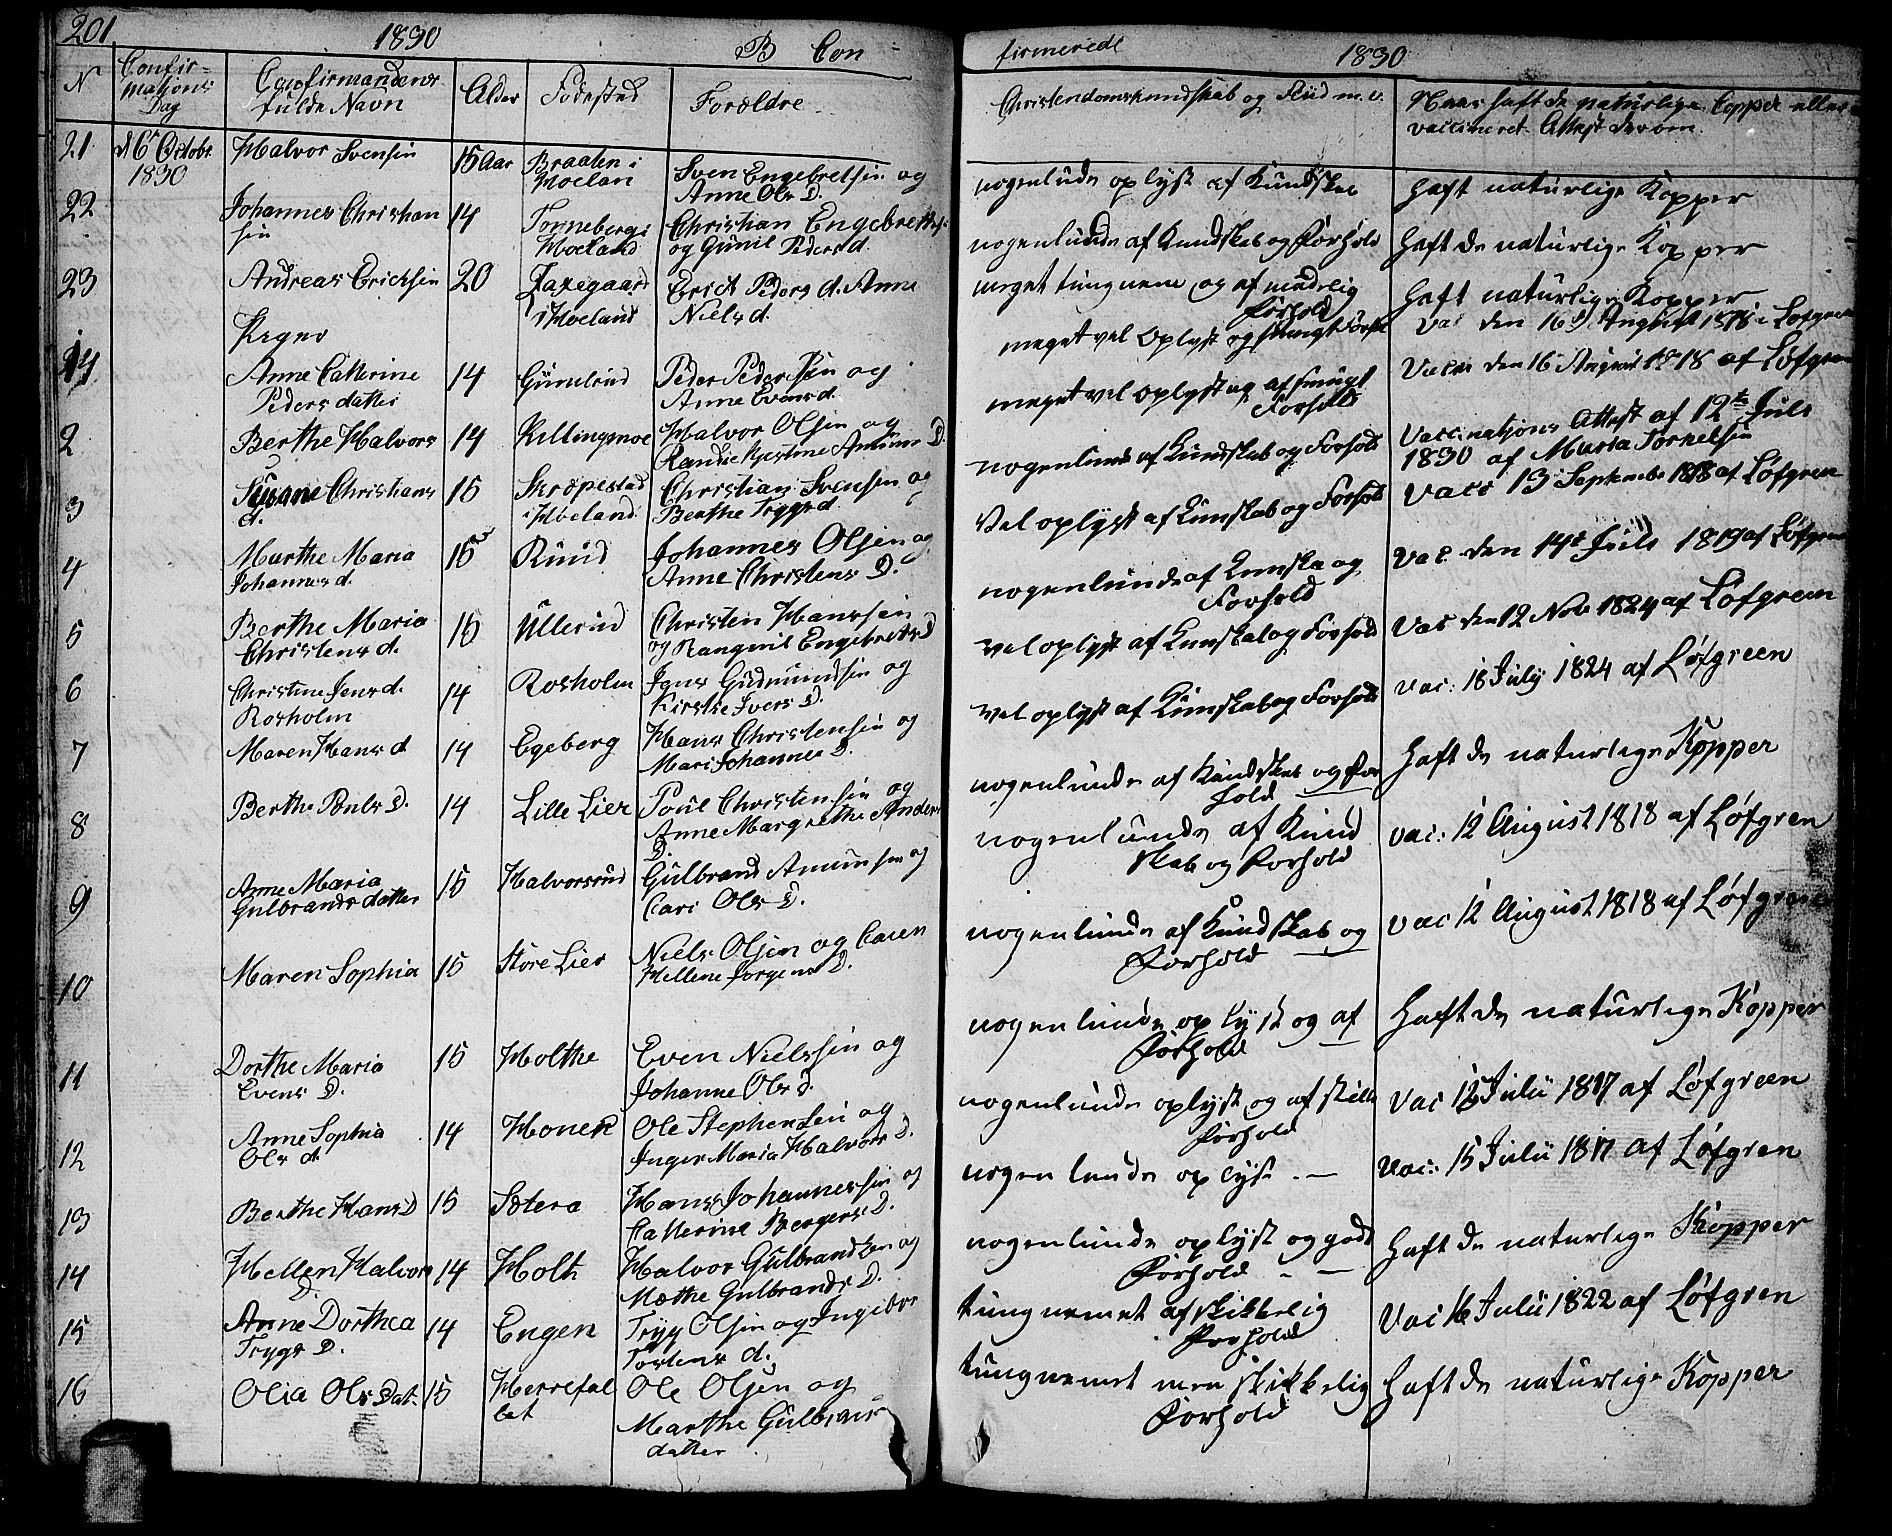 201
1830
B Con
firmerede
1830
N
Confir-
mations
Dag
Confirmandens
fulde Navn
Alder
Fødested
Forældre
Christendomskundskab og Flid m.v.
Naar haft de naturlige Copper eller
vaccineret. Attest derom.
21
d 6 Octobr
1830
Halvor Svensen
15 Aar
Braaten i
Høland
Sven Engebretsen og
Anne Ols D.
nogenlunde oplyst af Kundskab
haft naturlige Kopper
22
Johannes Christian
sen
14
Tonneberg i
Høeland
Christian Engebrets.
og Gunil Peders d.
nogenlunde af Kundskab og Forhold
haft de naturlige Kopper
23
Andreas Ericksen
20
i Høeland
Erick Peders d. Anne
Niels d.
meget tungnem og af
Forhold
haft naturlige Kopper
Piger
meget vel oplyst og
Vac den 16 August 1818 Løfgreen
1
Anne Catterine
Peders datter
14
Gunelrud
Peder Pedersen og
Anne Evens d.
meget vel oplyst og af smugt
Forhold
Vacc den 16 August 1818 af Løfgreen
2
Berthe Halvors
14
Killingmoe
Halvor Olsen og
Randie Kjestine Amuns D.
nogenlunde af Kundskab og Forhold
Vaccinations Attest af 12te Juli
1830 af Maria Torkelsen
3
Susane Christians
d.
15
Skropestad
i Høeland
Christian Svensen og
Berthe Trygs d.
Vel oplyst af Kunskab og Forhold
Vacc 13 September 1818 af Løfgreen
4
Marthe Maria
Johannes d.
15
Ruud
Johannes Olsen og
Anne Christens D.
nogenlunde af Kunska og
Forhold
Vac den 14de Juli 1819 af Løfgreen
5
Berthe Maria
Christens d.
15
Ullerud
Christen Hanssen
og Rangnil Engebrets D
vel oplyst af Kunskab og Forhold
Vac den 12 Nov 1824 af Løfgreen
6
Christine Jens d.
Rosholm
14
Rosholm
Jens Gudmundsen og
Kirstie Ivers D.
vel oplyst af Kunskab og Forhold
Vac: 18 July 1824 af Løfgreen
7
Maren Hans d
14
Egeberg
Hans Christensen og
Mari Johannes D.
nogenlunde af Kundskab og For
hold
haft de naturlige Kopper
8
Berthe Pouls D.
14
Lille Lier
Poul Christensen og
Anne Margrethe Anders
D.
nogenlunde af Kund
skab og Forhold
vac: 12 August 1818 af Løfgren
9
Anne Maria
Gulbrands datter
15
Halvorsrud
Gulbrand Amunsen og
Cari Ols D.
nogenlunde af Kundskab og
Forhold
vac 12 August 1818 af Løfgreen
10
Maren Sophia
15
Store Lier
Niels Olsen og Caren
Hellene Jorgens D.
nogenlunde oplyst og af
Forhold
haft de naturlige Kopper
11
Dorthe Maria
Evens D.
15
Holthe
Even Nielssen og
Johanne Ols D
nogenlunde oplyst og af skikk
Forhold
Vac 12 Julii 1817 af Løfgreen
12
Anne Sophia
Ols d.
14
Honer
Ole Stephensen og
Inger Maria Halvors D.
nogen lunde oplyst. —
Vac: 15 Julii 1817 af Løfgren
13
Berthe Hans D
15
Sætera
Hans Johannessen og
Catterine Bergers D.
nogenlunde oplyst og godt
Forhold - —
haft de naturlige Kopper
14
Hellen Halvors
D.
14
Holt
Halvor Gulbrandsen og
Mæthe Gulbrands D.
tungnemet af skikkelig
Forhold
Vac 16 Julii 1822 af Løfgren
15
Anne Dorthea
Trygs D.
14
Engen
Tryg Olsen og Ingebor
Tostens d.
tungnemet men skikkelig
Forhold
haft de naturlige Kopper
16
Olia Ols Dat.
15
Herrefal
let
Ole Olsen og
Marthe Gulbrans
datter